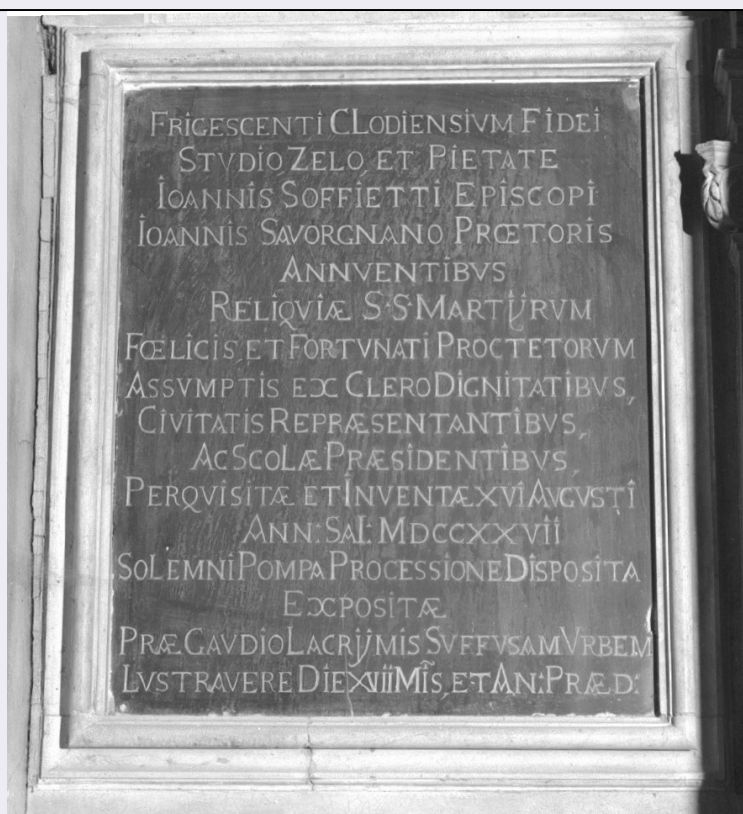 FRIGESCENTI CLODIENSIVM FIDEI
STVDIO ZELO, ET PIETATE
IOANNIS SOFFIETTI EPISCOPI
IOANNIS SAVORGNANO PRŒTORIS
ANNVENTIBVS
RELIQVIÆ S·S·MARTIJRVM
FŒLICIS, ET FORTVNATI PROCTETORVM
ASSVMPTIS EX CLERO DIGNITATIBVS,
CIVITATIS REPRÆSENTANTIBVS,
AC SCOLÆ PRÆSIDENTIBVS,
PERQVISITÆ ET INVENTÆ XVI AVGVSTI
ANN: SAL: MDCCXXVII
SOLEMNI POMPA PROCESSIONE DISPOSITA
EXPOSITÆ
PRÆ GAVDIO LACRIJMIS SVFFVSAM VRBEM
LVSTRAVERE DIE XVIII MĨS, ET AN: PRÆD: